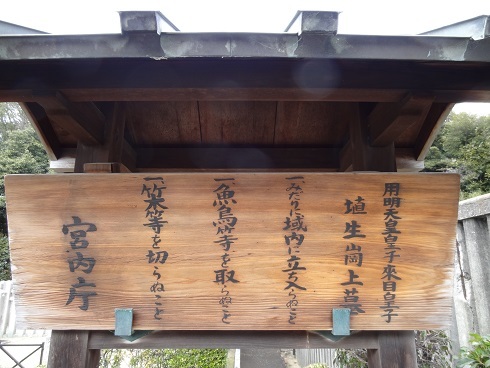 用明天皇皇子來目皇子
埴生崗上墓
一みだりに域内に立入らぬこと
一魚鳥等を取らぬこと
一竹木等を切らぬこと
宮内庁